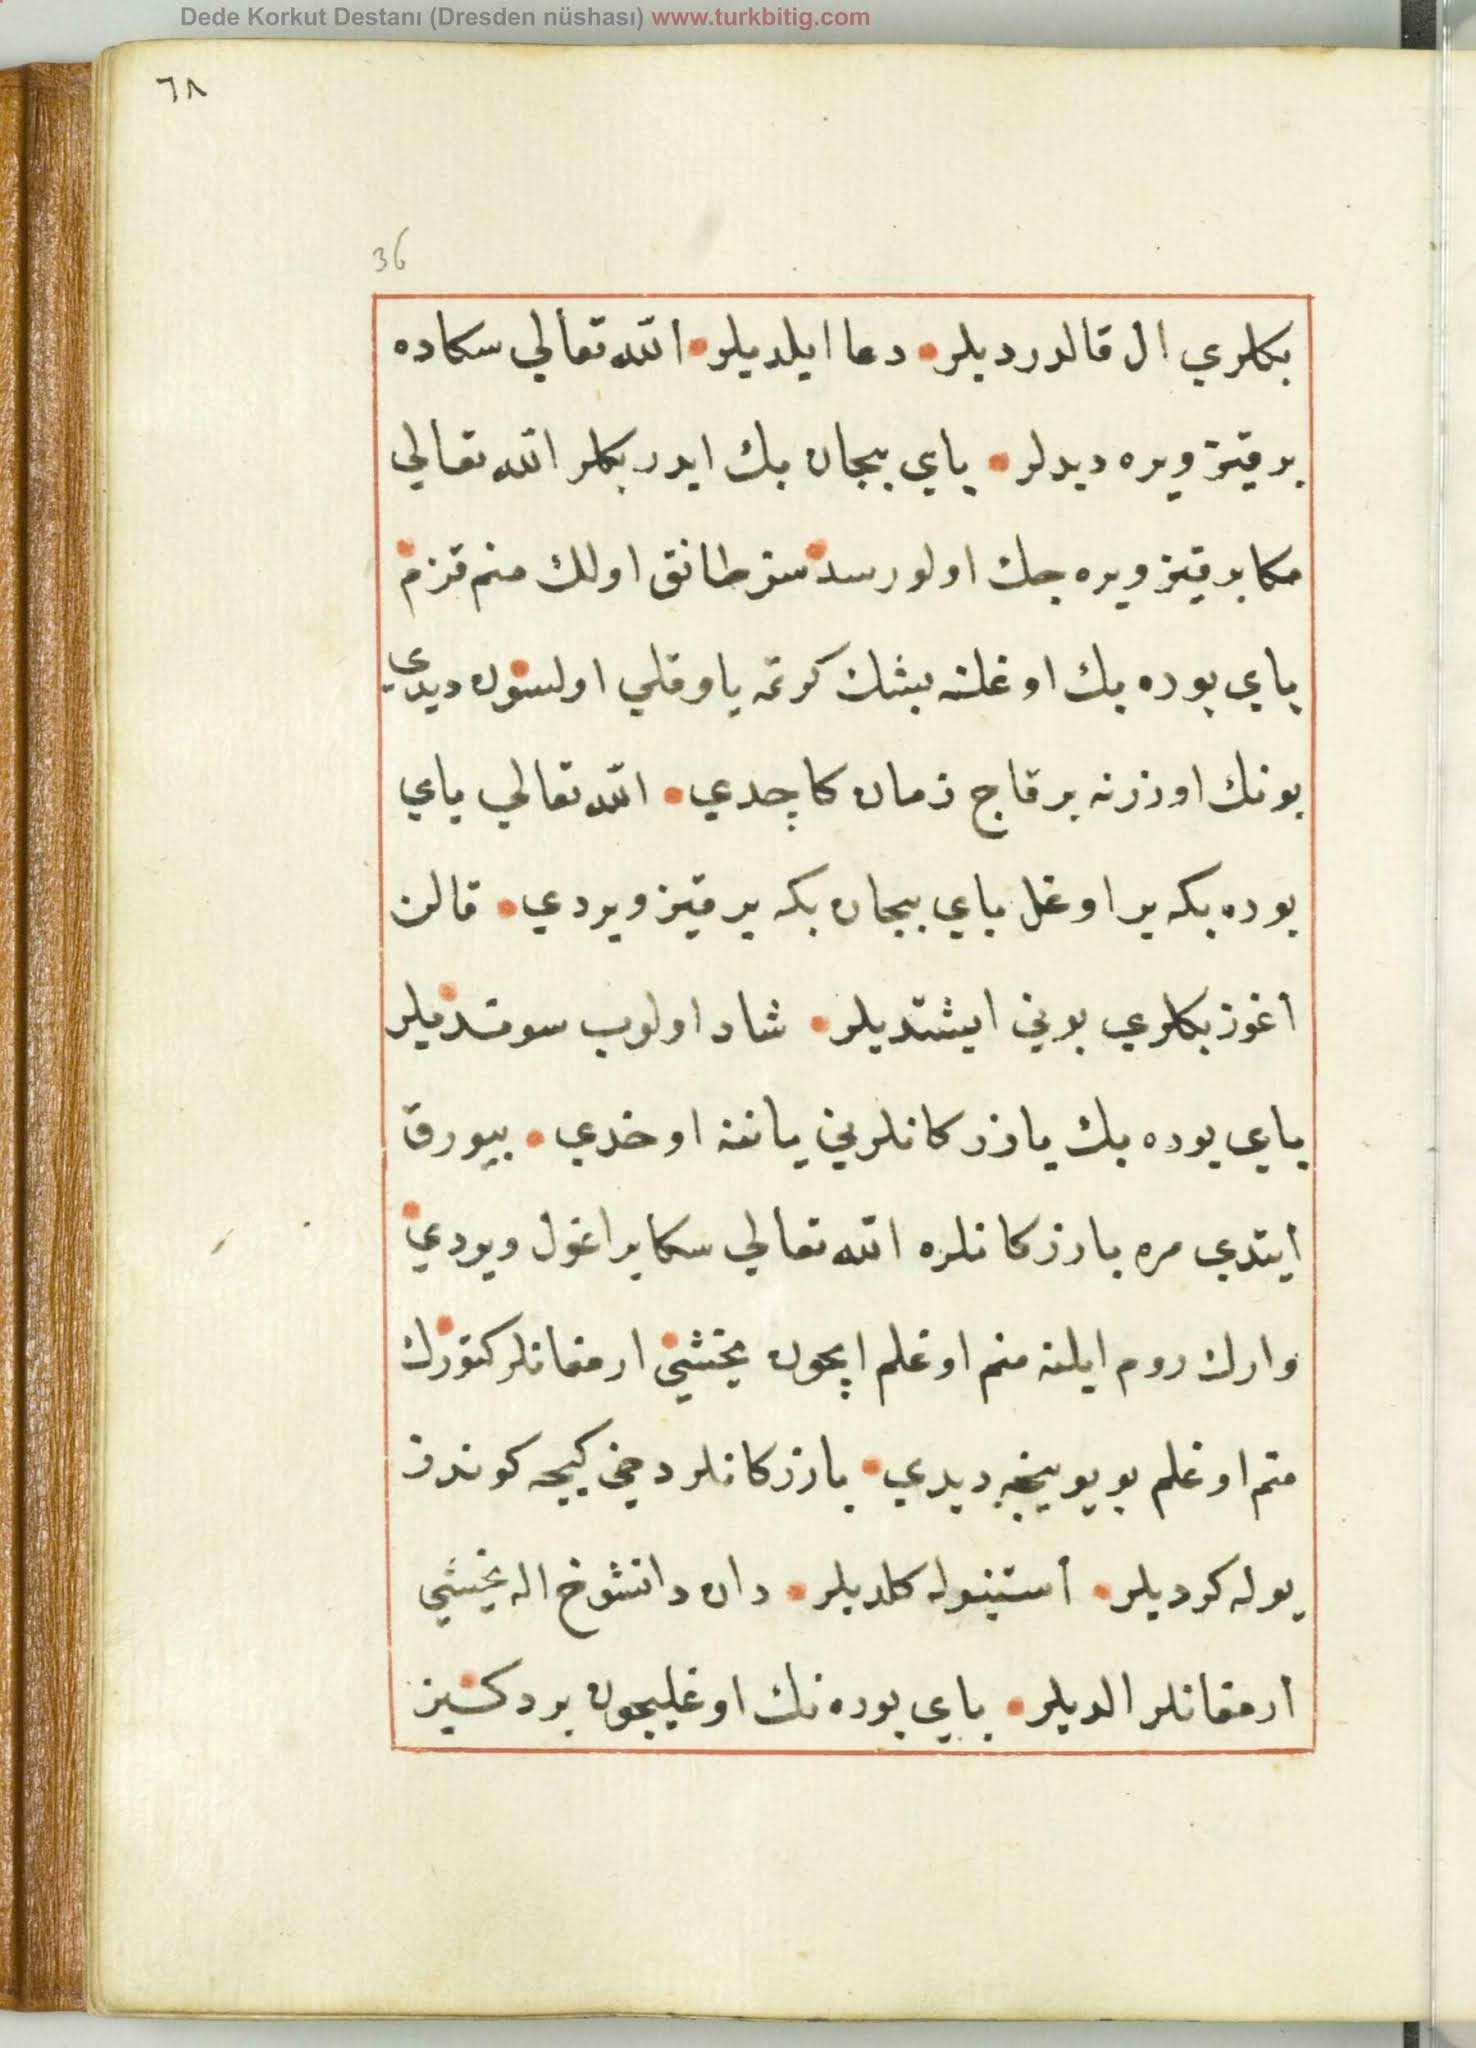 Dede Korkut Destanı (Dresden nüshası) www.turkbitig.com
٦٨
36
بكلري ال قالدرديلر • دعا ايلديلر • الله تعالي سكا ده
بر قيز ويره ديدلر • باي بيجان بك ايدر بكلر الله تعالي
مكا بر قيز ويره جك اولورسه سز طانق اولك منم قزم
باي بوره بك اوغلنه بيشك كرتمه ياوقلي اولسون ديدي
بونك اوزرنه بر قاج زمان كاچدي • الله تعالي باي
بوره بكه بر اوغل باي بيجان بكه بر قيز ويردي • قالن
أغوز بكلري بوني ايشتديلر • شاد اولوب سوندیلر
باي بوره بك بازركانلريني ياننه اوخدي • بيورق
أيتدي مره بازركانلره الله تعالي سكا بر اغول ويردي
وارك روم ايلنه منم اوغلم ايچون يخشي ارمغانلر كتورك
منم اوغلم بويوينجه ديدي • بازركانلر دخي كيجه كوندز
يوله كرديلر • أستنبوله كلديلر • دان دانشوخ اله يخشي
أرمغانلر الديلر • باي بوره نك اوغليچون بر دكز